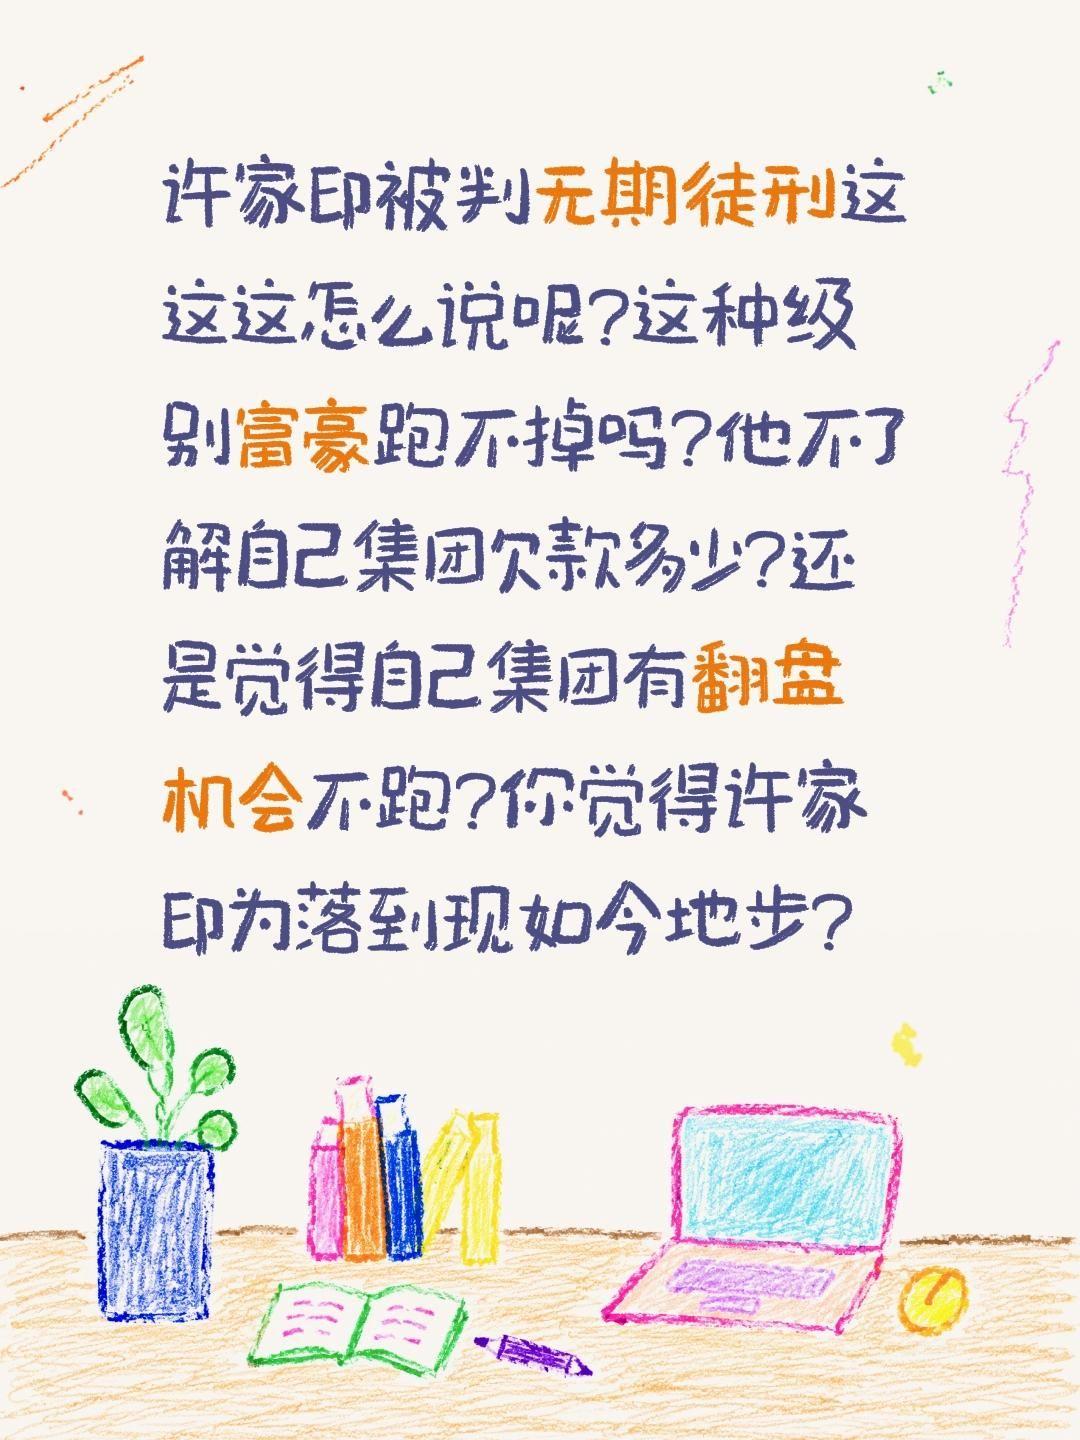 许家印被判无期徒刑这
这这怎么说呢?这种级
别富豪跑不掉吗?他不了
解自己集团欠款多少?还
是觉得自己集团有翻盘
机会不跑?你觉得许家
印为落到现如今地步?